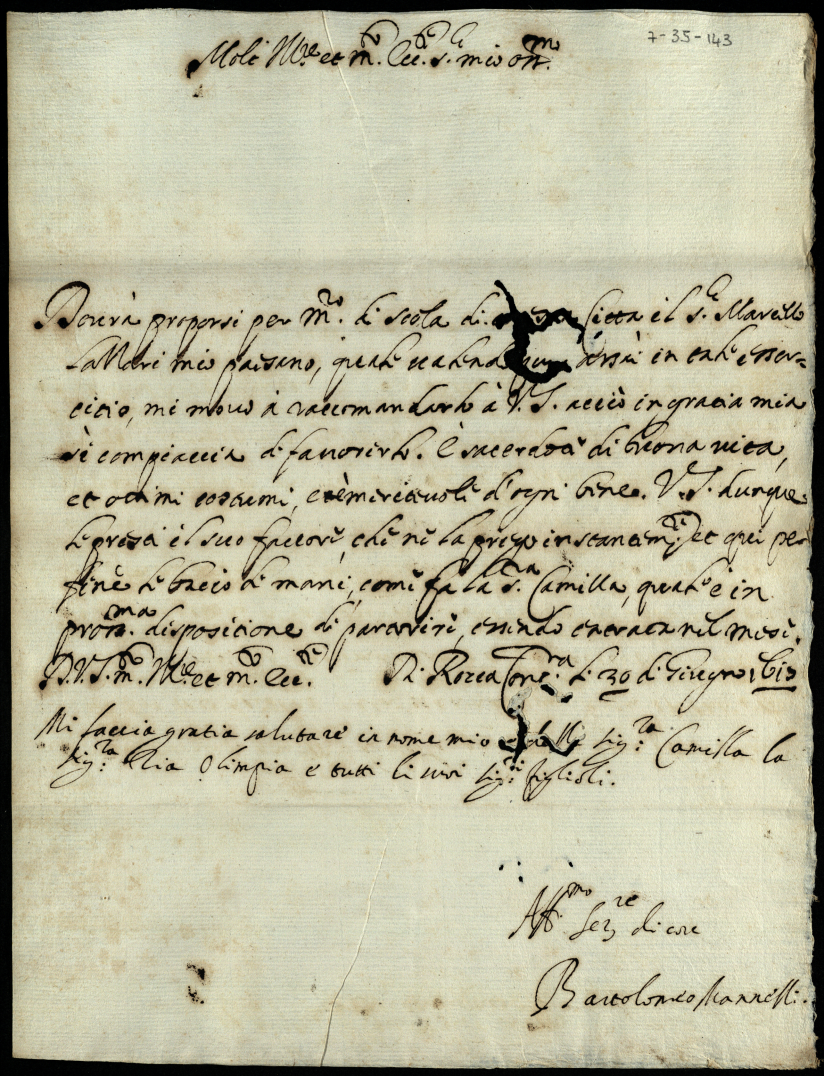 7-35-143
Molt Ill.re et m.to Ecc.te s.r mio oss.mo
Dovrà proporsi per m.ro di scola di Città il s.r Marcello
mio paesano, quale in tale esser=
citio, mi movo à raccomandarlo à V.S. acciò in gratia mia
si compiaccia di favorirlo. È sacerdote di buona vita,
et ottimi costumi, et è meritevole d'ogni bene. V.S. dunque
le presti il suo favore, che ne la prego instantem.te et qui per
fine le bacio le mani, come fa la s.ra Camilla, quale è in
pross.ma disposicione di parturire, essendo entrata nel mese.
D.V.S. m.to Ill.re et m.to Ecc.te Di Rocca li 30 di Giugno
Mi faccia gratia salutare in nome mio sig.ra Camilla la
sig.ra Olimpia e tutti li suoi sig.ri figlioli.
Aff.mo Ser.re di core
Bartolomeo Mannelli.